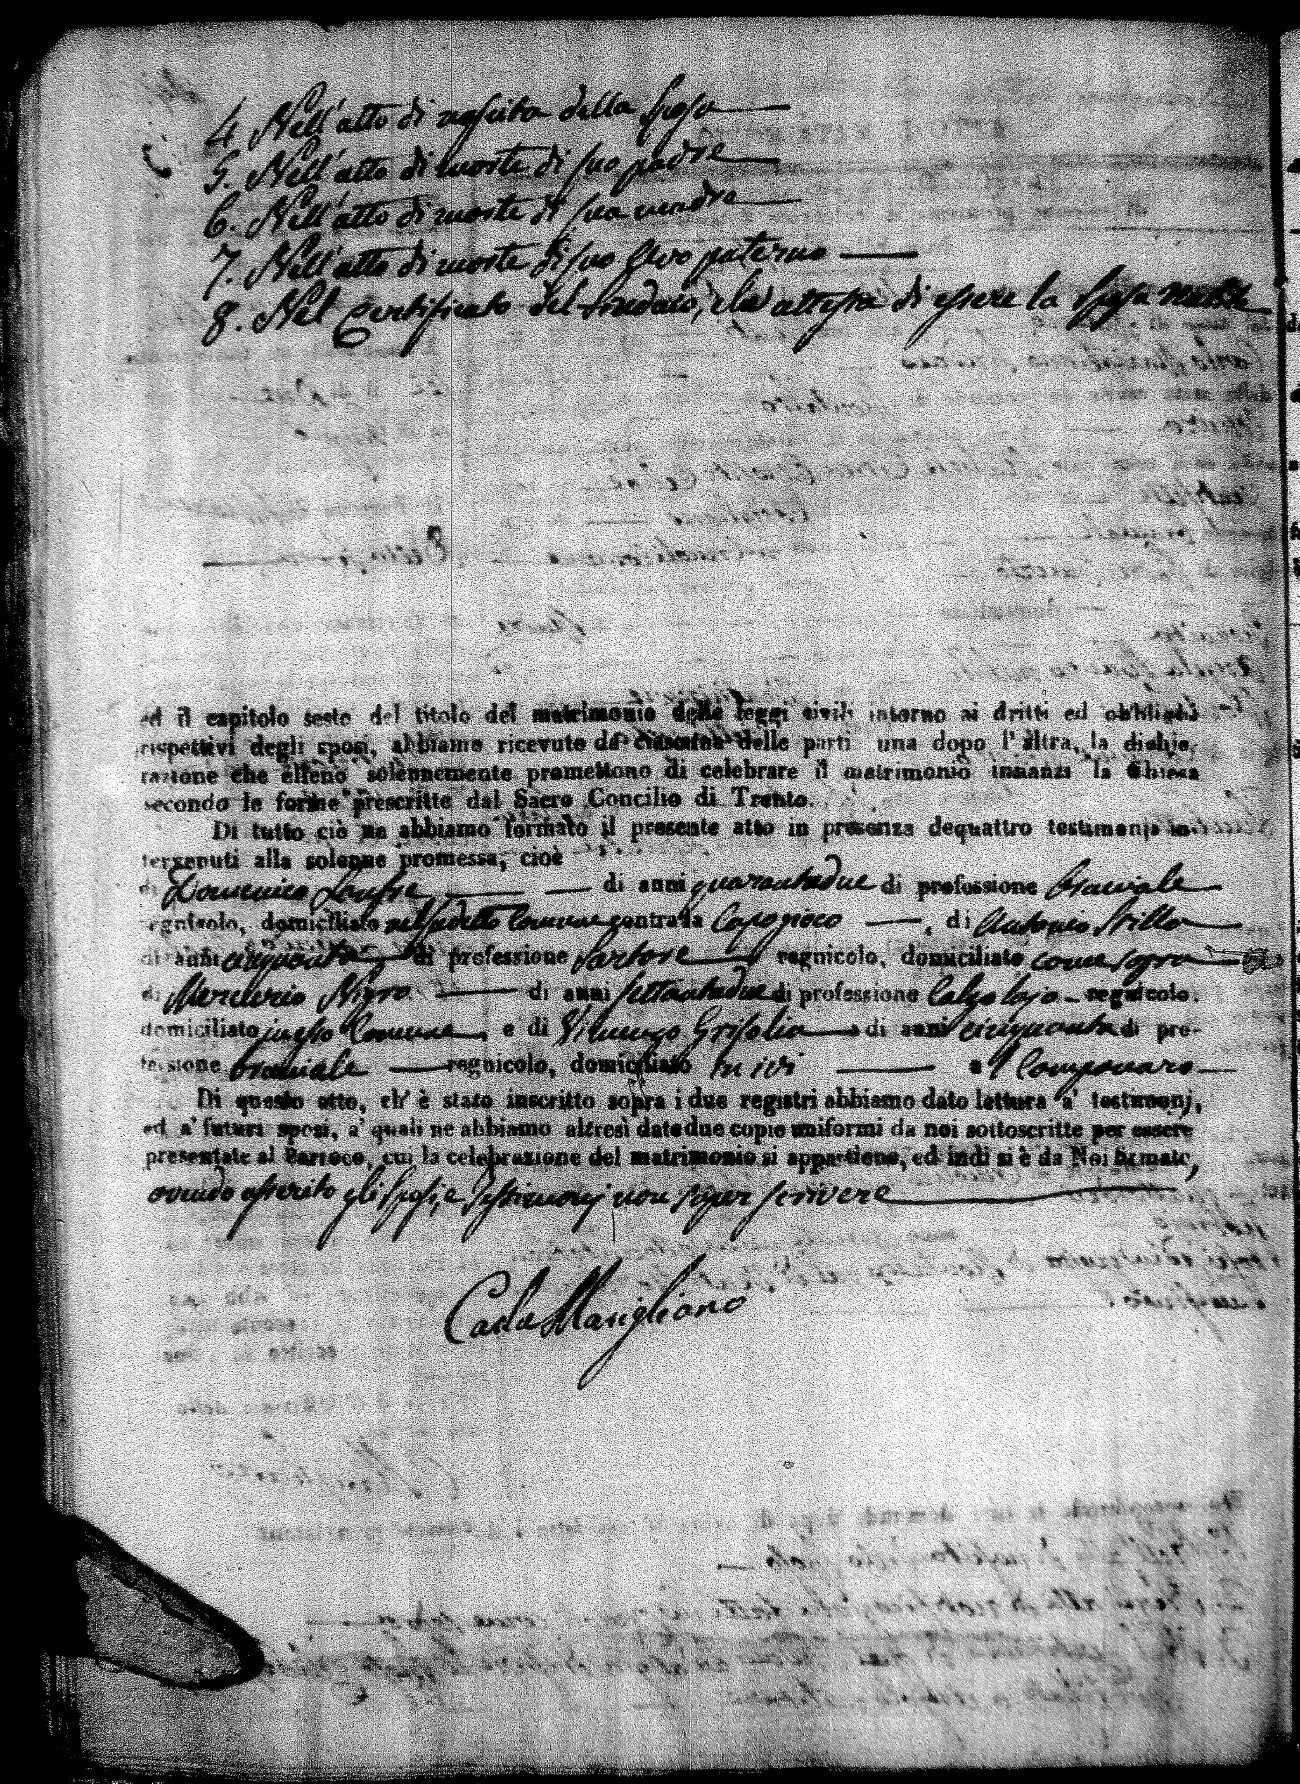 4. Nell'atto di nascita della sposa
5. Nell'atto di morte di suo padre
6. Nell'atto di morte di sua madre
7. Nell'atto di morte di suo avo paterno
8. Nel Certificato del Sindaco, che attesta di essere la sposa
ed il capitolo sesto del titolo del matrimonio delle leggi civili intorno ai dritti ed obblighi
rispettivi degli sposi, abbiamo ricevuto da ciascuna delle parti una dopo l'altra, la dichia-
razione che elleno solennemente promettono di celebrare il matrimonio innanzi la Chiesa
secondo le forme prescritte dal Sacro Concilio di Trento.
Di tutto ciò ne abbiamo formato il presente atto in presenza dequattro testimonj in-
tervenuti alla solenne promessa, cioè
di Domenico di anni quarantadue di professione Bracciale
regnicolo, domiciliato nel detto Comune contrada Capo gioco, di Antonio Stillo
di anni cinquanta di professione Sartore regnicolo, domiciliato come sopra
di Mercurio Nigro di anni settantadue di professione Calzolajo regnicolo.
domiciliato in esto Comune, e di Vincenzo Grisolia di anni cinquanta di pro-
fessione bracciale regnicolo, domiciliato in ivi a
Di questo atto, ch' è stato inscritto sopra i due registri abbiamo dato lettura a' testimonj,
ed a' futuri sposi, a' quali ne abbiamo altresì date due copie uniformi da noi sottoscritte per essere
presentate al Parroco, cui la celebrazione del matrimonio si appartiene, ed indi si è da Noi firmato,
avendo asserito gli sposi, e testimonj non saper scrivere
Carlo Marigliano